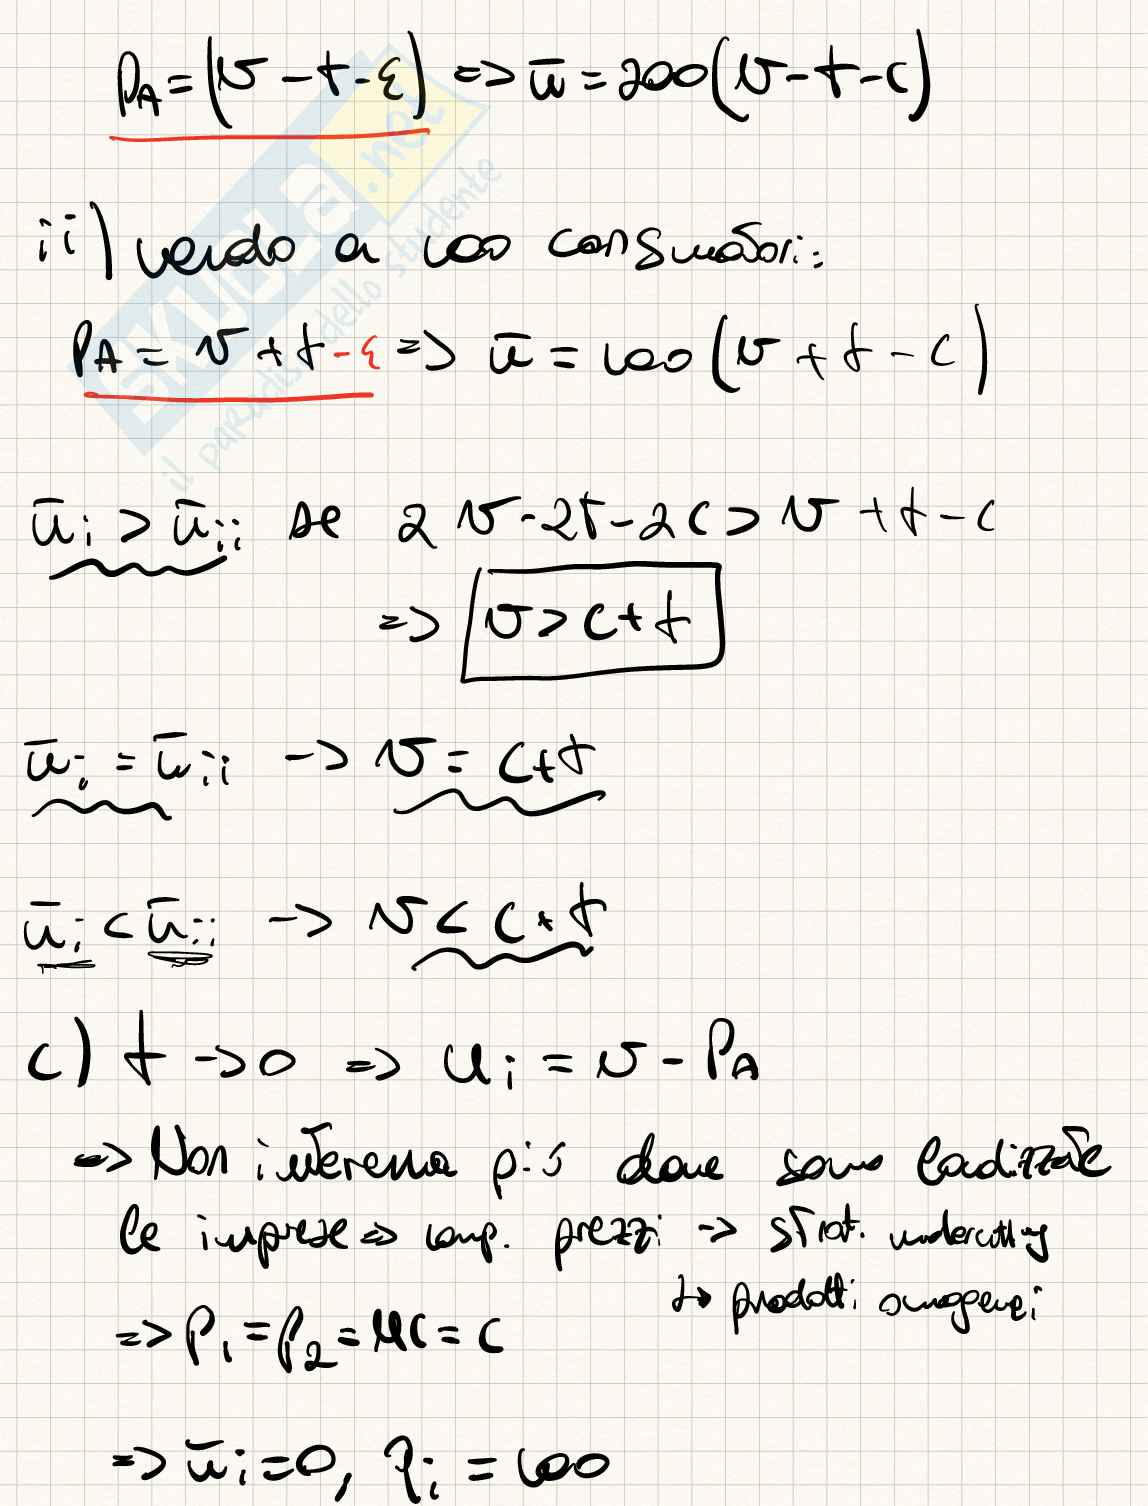 PA = (v - t - ε) => π̄ = 200(v - t - c)
ii) vendo a 100 consumatori:
PA = v + t - ε => π̄ = 100(v + t - c)
π̄i > π̄ii se 2v - 2t - 2c > v + t - c
=> v > c + t
π̄i = π̄ii -> v = c + t
π̄i < π̄ii -> v < c + t
c) t -> 0 => ui = v - PA
=> Non interessa più dove sono localizzate
le imprese => comp. prezzi -> strat. undercutting
↳ prodotti omogenei
=> P1 = P2 = MC = c
=> π̄i = 0, qi = 100
SKUOLA.net
il paradiso dello studente